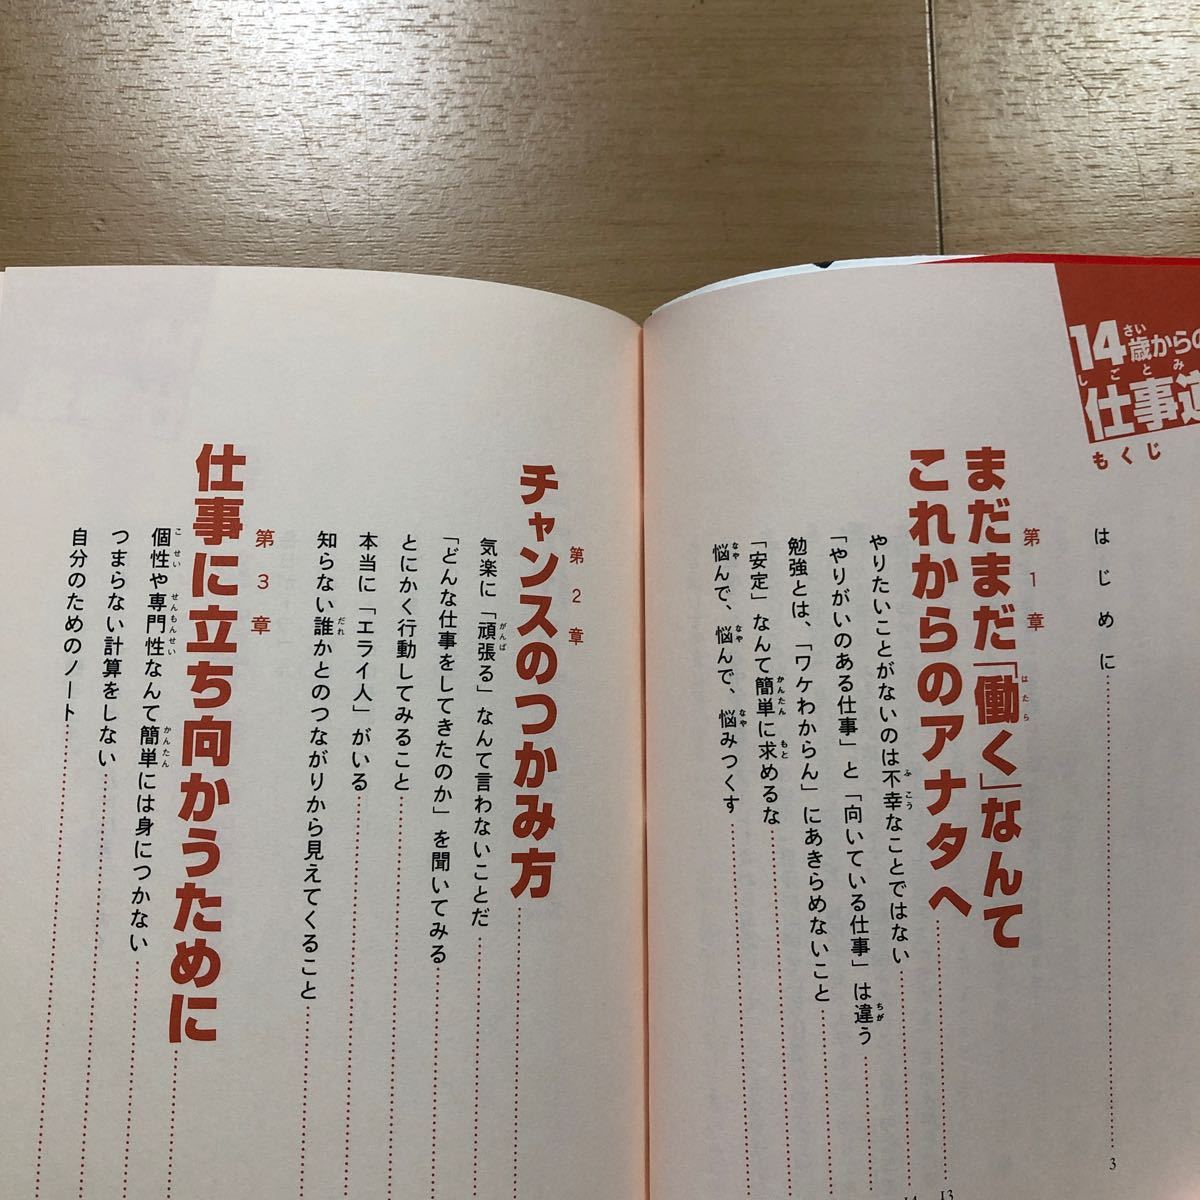 14歳からの
仕事道
もくじ
はじめに
3
第1章
まだまだ「働く」なんて
これからのアナタへ
13
やりたいことがないのは不幸なことではない
14
「やりがいのある仕事」と「向いている仕事」は違う
勉強とは、「ワケわからん」にあきらめないこと
「安定」なんて簡単に求めるな
悩んで、悩んで、悩みつくす
第2章
チャンスのつかみ方
気楽に「頑張る」なんて言わないことだ
「どんな仕事をしてきたのか」を聞いてみる
とにかく行動してみること
本当に「エライ人」がいる
知らない誰かとのつながりから見えてくること
第3章
仕事に立ち向かうために
個性や専門性なんて簡単には身につかない
つまらない計算をしない
自分のためのノート